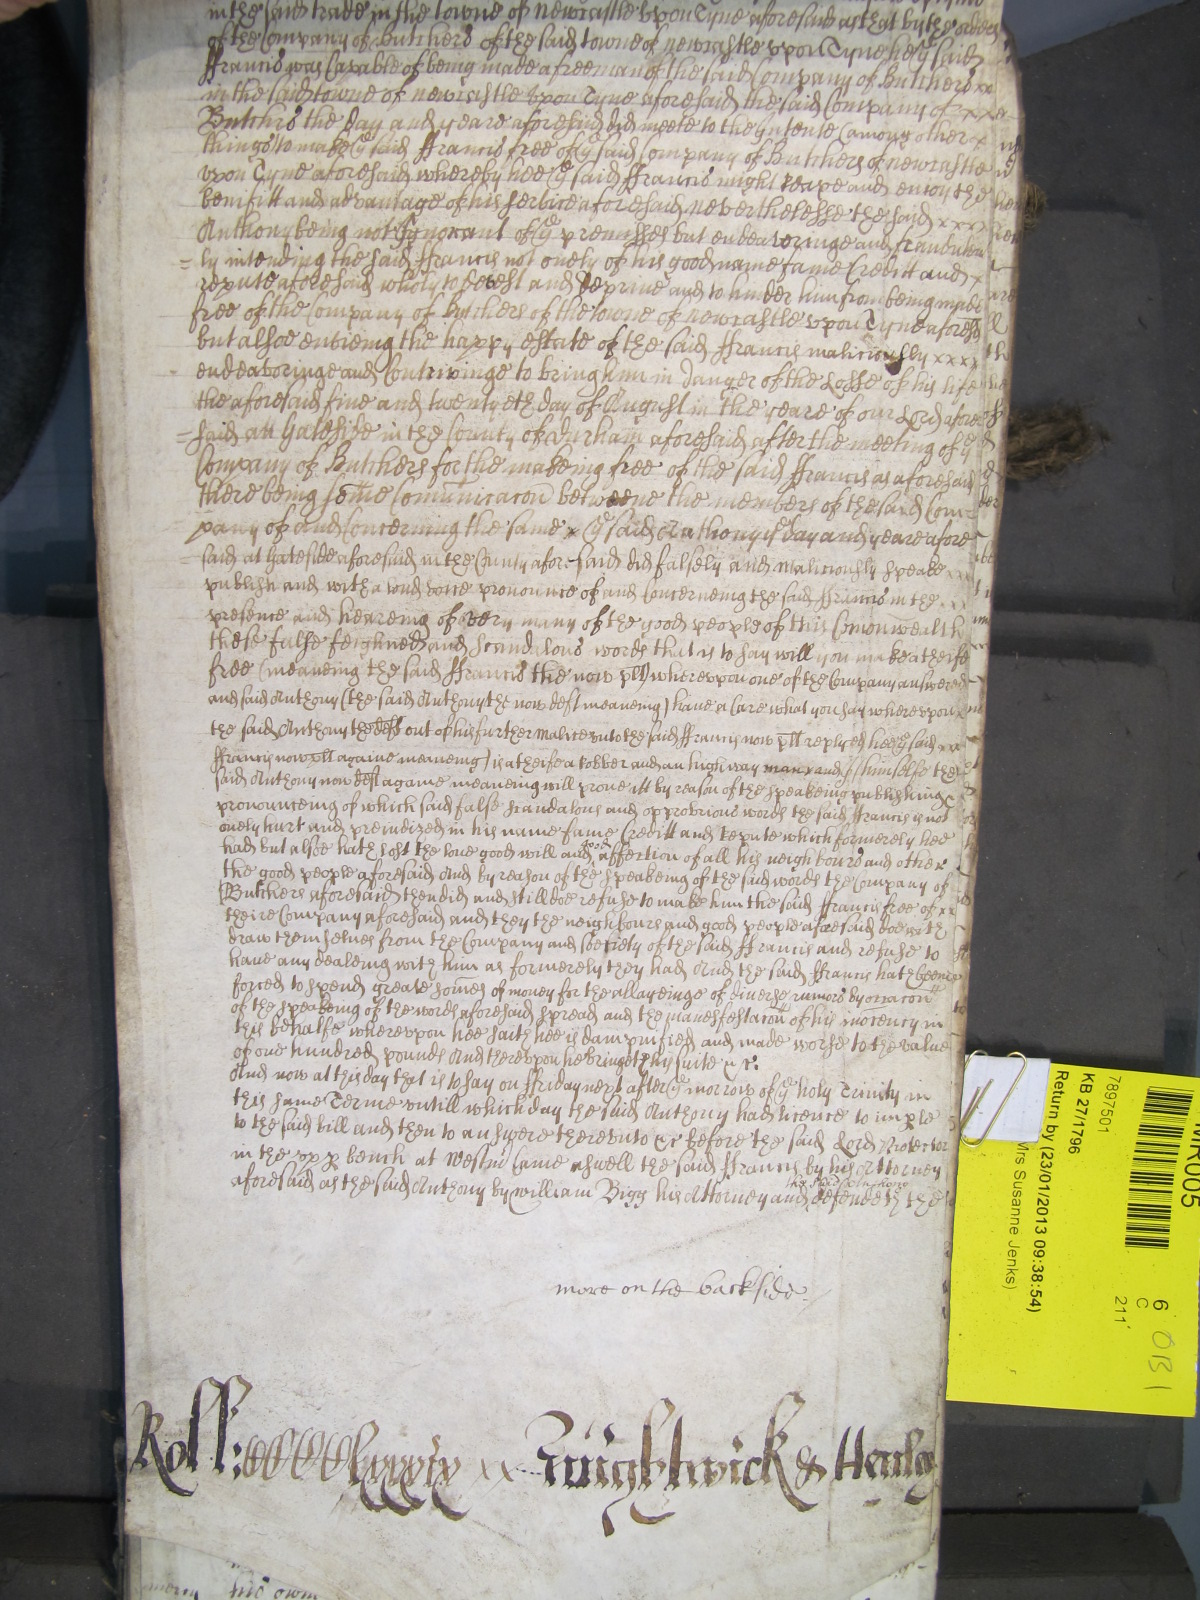 in the said trade in the towne of newcastle vpon Tyne aforesaid as that by the orders
of the Company of Butchers of the said towne of newcastle vpon Tyne hee ye said
ffrancis was Capable of being made a freeman of the said Company of Butchers xx
in the said towne of newcastle vpon Tyne aforesaid the said Company of xxx
Butchrs the day and yeare aforesaid did meete to the Intente (among other x
things to make ye said ffrancis free of ye said Company of Butchers of newcastle
vpon Tyne aforesaid whereby hee ye said ffrancis might reape and enioy the
benifitt and advantage of his service aforesaid neverthelesse the said xxxx
Anthony being not Ignorant of ye premisses but endeavoringe and fraudulen
=ly intending the said ffrancis not onely of his good name fame Creditt and x
repute aforesaid wholy to devest and deprive and to hinder him from being made
free of the Company of Butchers of the towne of newcastle vpon Tyne aforesd
but alsoe envieing the happy estate of the said ffrancis maliciously xxxx
endeavoringe and Contrivinge to bring him in danger of the Losse of his life
the aforesaid five and twentyeth day of August in the yeare of our Lord afore
=said att Gateside in the County of Durham aforesaid after the meeting of ye
Company of Butchers for the makeing free of the said ffrancis as aforesaid
there being some Comunicacon betweene the members of the said Com
pany of and Concerning the same x ye said Anthony ye day and yeare afore
said at Gateside aforesaid in the County aforesaid did falsely and maliciously speake
publish and with a loud voice pronounce of and Concerneing the said ffrancis in the
presence and heareing of very many of the good people of this Comonwealth
these false feighned and scandalous words that is to say will you make a theife
free (meaneing the said ffrancis the now plt) wherevpon one of the Company answered
and said Anthony (the said Anthony the now deft meaneing) have a Care what you say wherevpon
the said Anthony the deft out of his further malice vnto the said ffrancis now plt replyed hee (ye said xx
ffrancis now plt againe meaneing) is a theife a robber and an high way man and I (himselfe the
said Anthony now deft againe meaneing will prove itt by reason of the speakeing publishing
pronounceing of which said false scandalous and opprobrious words the said ffrancis is not
onely hurt and preiudized in his name fame Creditt and repute which formerely hee
had but alsoe hath lost the love good will and good affection of all his neighbours and other
the good people aforesaid And by reason of the speakeing of the said words the Company of
Butchers aforesaid then did and still doe refuse to make him the said ffrancis free of xx
theire Company aforesaid and they the neighbours and good people aforesaid doe with
draw themselves from the Company and Society of the said ffrancis and refuse to
have any dealing with him as formerely they had And the said ffrancis hath beene
forced to spend greate somes of money for the allayeinge of diverse rumors by occacon
of the speakeing of the words aforesaid spread and the manefestacon of his inocency in
this behalfe wherevpon hee saith hee is dampnified and made worse to the value
of one hundred pounds And therevpon he bringeth his suite &c:
And now at this day that is to say on ffriday next after ye morrow of ye holy Trinity in
this same Terme vntill which day the said Anthony had licence to imple
to the said bill and then to answere therevnto &c before the said Lord Protector
in the vpp bench at Westmr Came aswell the said ffrancis by his Attorney
aforesaid as the said Anthony by William Bigg his Attorney and the said Anthony defendeth the
more on the backside.
Roll: xx Zuightwick & Henly
his owne
MR005
7897501
KB 27/1796
Return by (23/01/2013 09:38:54)
Mrs Susanne Jenks)
6
C
211